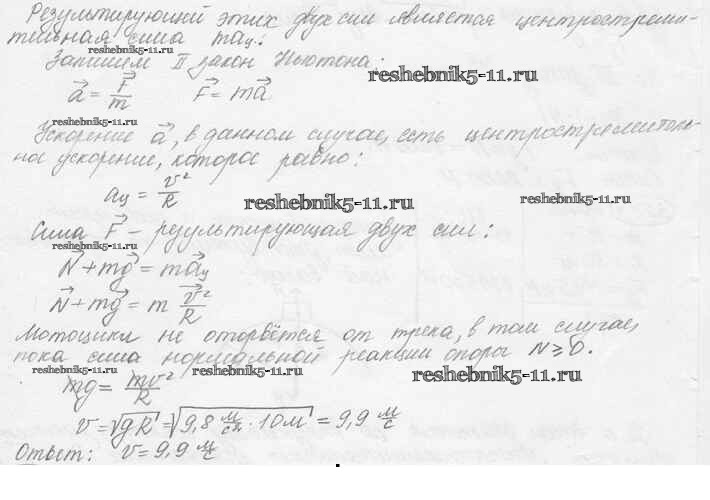 Результирующей этих двух сил является центростреми-
тельная сила maц:
reshebnik5-11.ru
Запишем II закон Ньютона:
reshebnik5-11.ru
reshebnik5-11.ru
a⃗ = F⃗/m    F⃗ = ma⃗
reshebnik5-11.ru
Ускорение a⃗, в данном случае, есть центростремитель-
ное ускорение, которое равно:
aц = v²/R
reshebnik5-11.ru
reshebnik5-11.ru
Сила F⃗ – результирующая двух сил:
reshebnik5-11.ru
N⃗ + mg⃗ = ma⃗ц
N⃗ + mg⃗ = m v⃗²/R
reshebnik5-11.ru
Мотоцикл не оторвётся от трека, в том случае,
пока сила нормальной реакции опоры N ≥ 0.
reshebnik5-11.ru
reshebnik5-11.ru
reshebnik5-11.ru
mg = mv²/R
v = √gR = √9,8 м/с² · 10м = 9,9 м/с
Ответ: v = 9,9 м/с
reshebnik5-11.ru